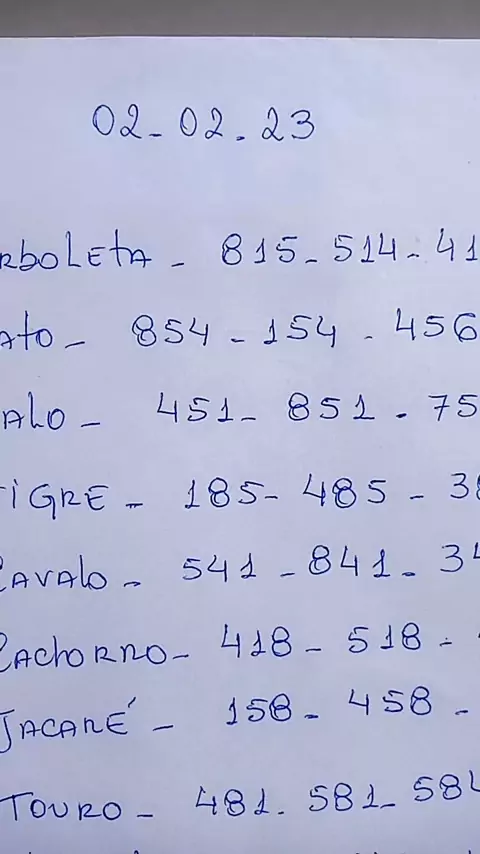 02-02.23
RBOLETA - 815-514-41
ATO - 854-154-456
ALO - 451-851-75
TIGRE - 185-485-38
CAVALO - 541-841-34
CACHORRO - 418-518-
JACARÉ - 158-458-
TOURO - 481.581-584